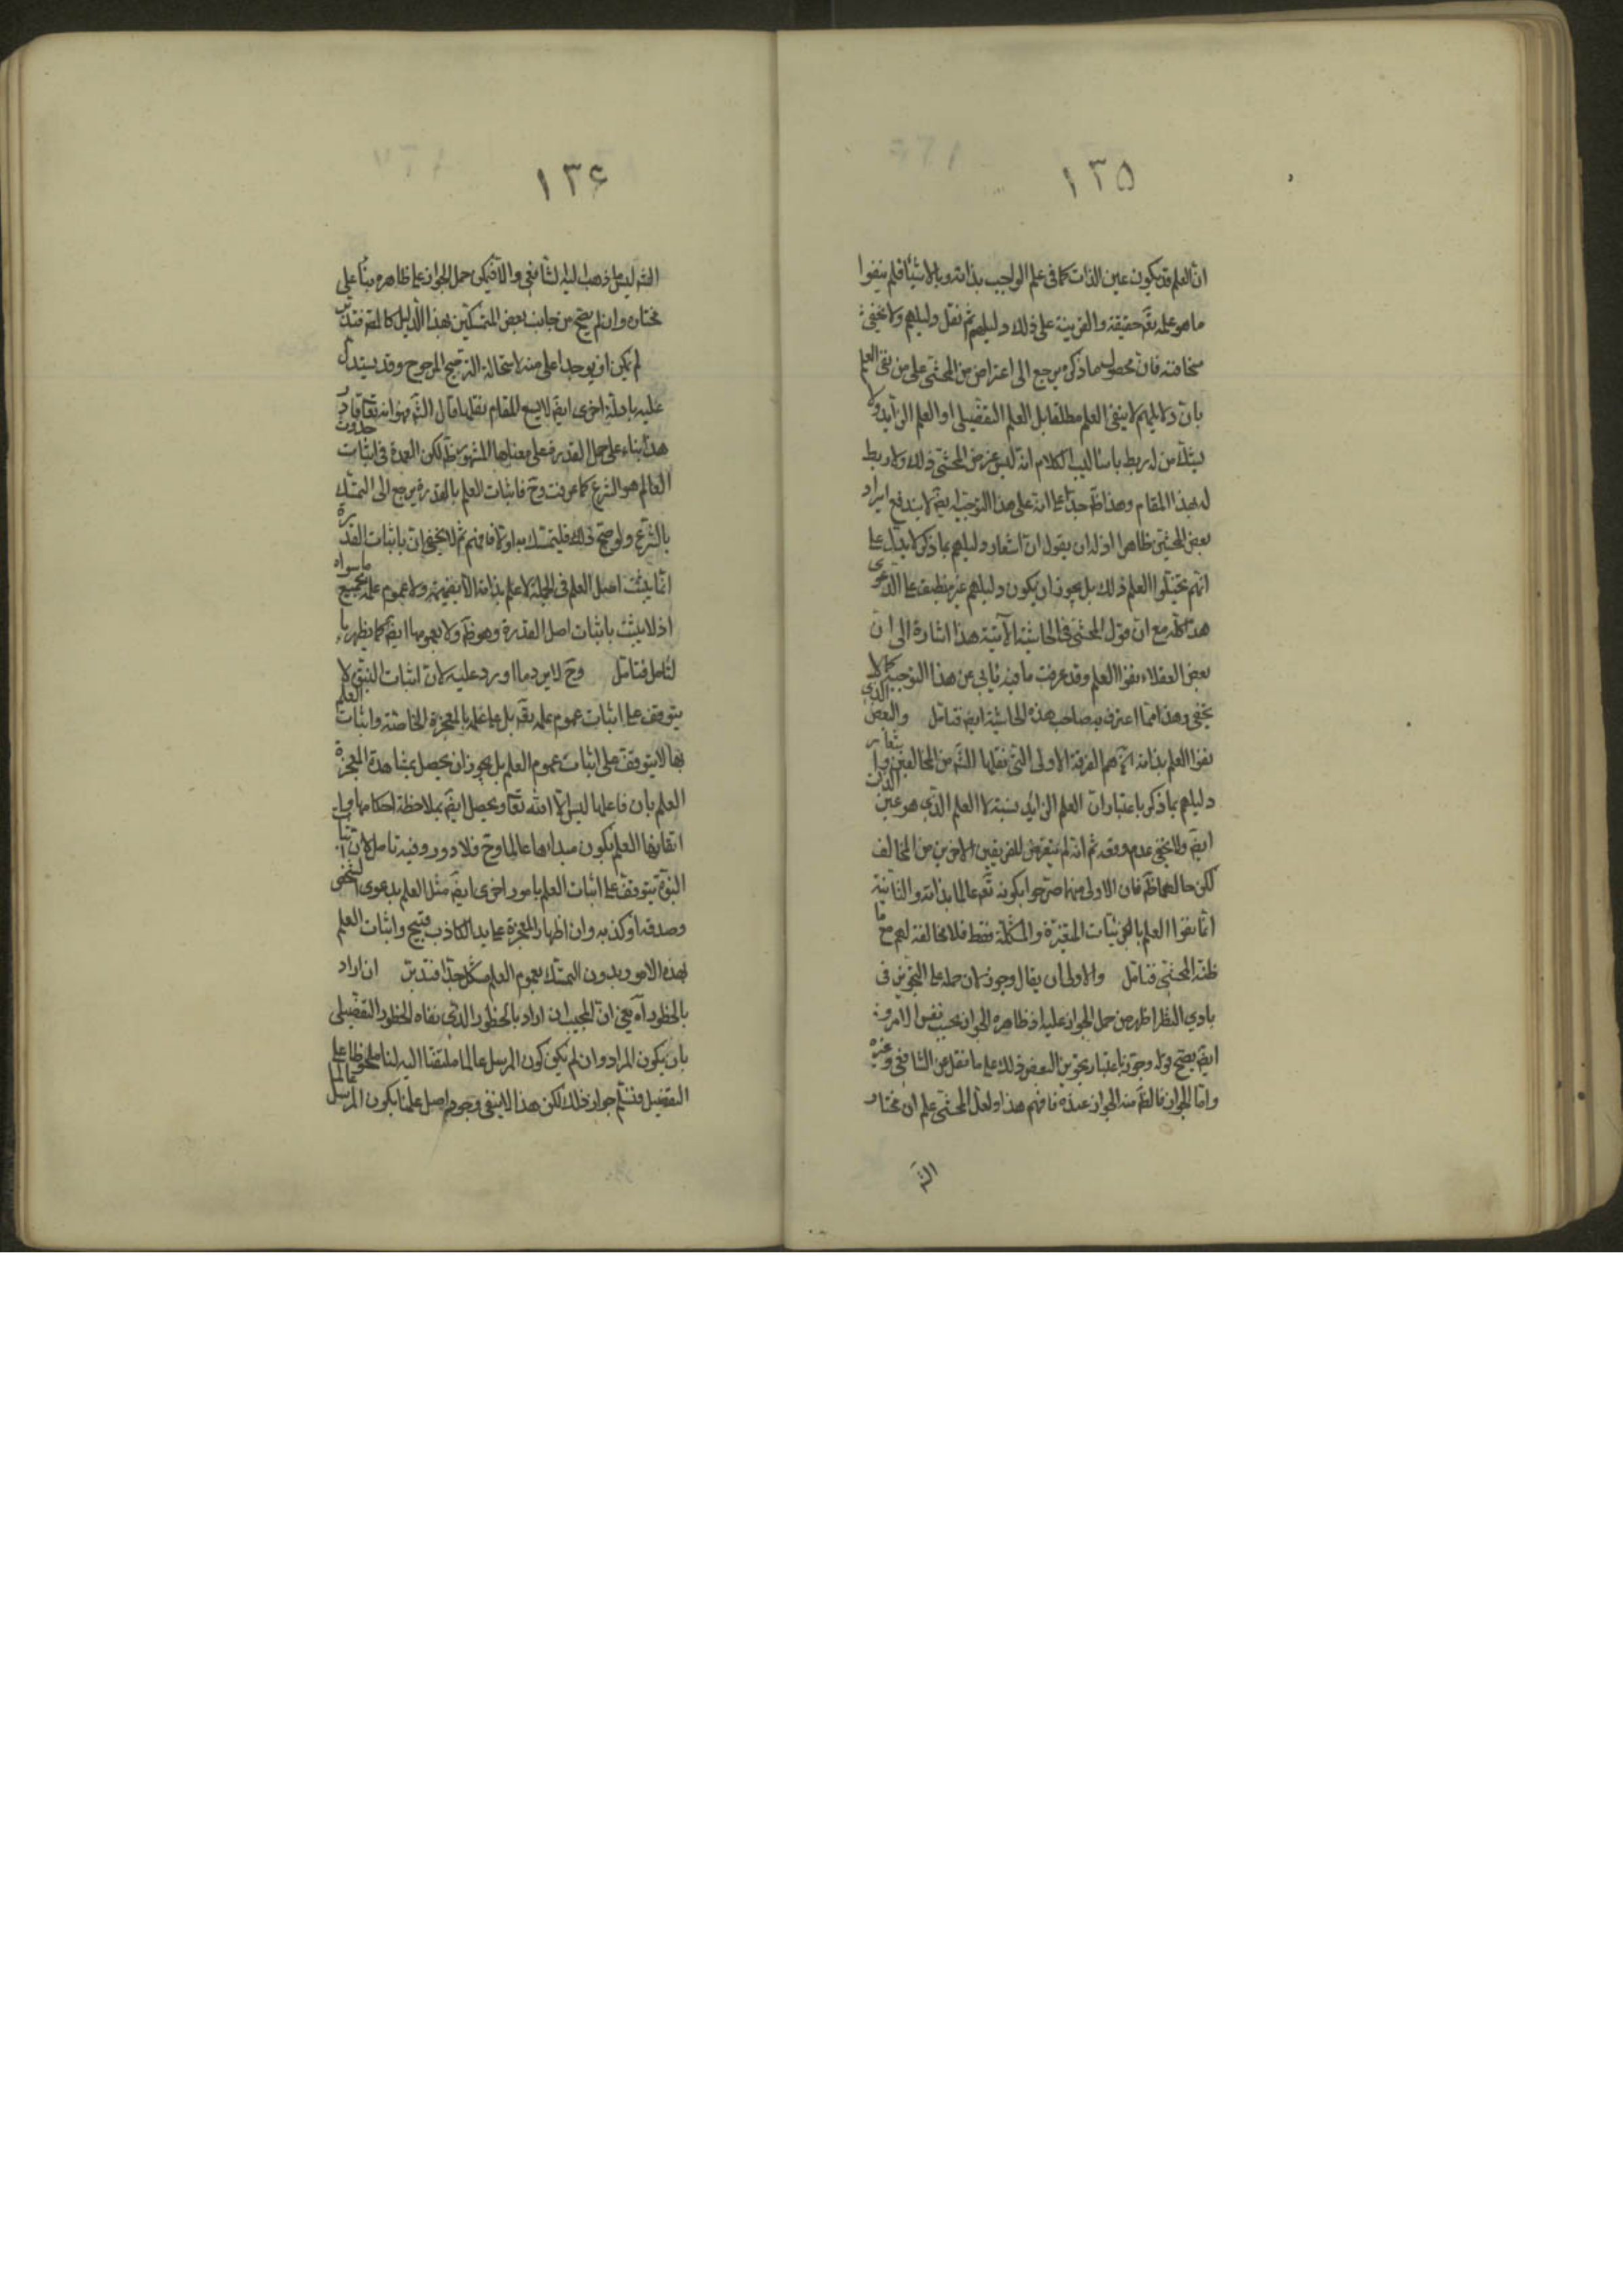 ١٣٥
ان العلم قد يكون عين الذات كما في علم الواجب بذاته وبالاشياء فلم ينفوا
ما هو علمه تعه حقيقة والقرينة على ذلك دليلهم ثم نقل دليلهم ولا يخفى
سخافته فان محصول ما ذكره يرجع الى اعتراض من المحشى على من نفى العلم
بان دلايلهم لا ينفى العلم مطلقا بل العلم التفصيلى او العلم الزايد ولا
يشك من له ربط باساليب الكلام انه ليس غرض المحشى ذلك ولا ربط
له بهذا المقام وهذا ظ جدا على انه على هذا التوجيه ايض لا يندفع ايراد
بعض المحشين ظاهرا اذ له ان يقول ان اشعار دليلهم بما ذكر لا يدل على
انهم تخيلوا العلم ذلك بل يجوز ان يكون دليلهم غير منطبق على الدعوى
هذا كله مع ان قول المحشى في الحاشية الآتية هذا اشارة الى ان
بعض العقلاء نفوا العلم وقد عرفت ما فيه يابى عن هذا التوجيه كما لا
يخفى وهذا مما اعترف به صاحب هذه الحاشية ايض فتامل والبعض الذى
نفوا العلم بذاته هم الفرقة الاولى التى نقلها الش من المخالفين
دليلهم بما ذكر باعتبار ان العلم الزايد نسبة لا العلم الذى هو عين الذات
ايض ولا يخفى عدم وقعه ثم انه لم يتعرض للفريقين الاخرين من المخالف
لكن حالهما ظ فان الاولى منهما صرحوا بكونه تعه عالما بذاته والثانية
انما نفوا العلم بالجزئيات المتغيرة والمتشكلة فقط فلا مخالفة لهم مع ما
ظنه المحشى فتامل والاولى ان يقال وجوز لان حمله على التجويز في
بادى النظر اظهر من حمل الجواز عليه اذ ظاهره الجواز بحسب نفس الامر و
ايض يصح قوله وجوز باعتبار تجويز البعض ذلك على ما نقل عن الشافعى وغيره
واما الجواز فالظ منه الجواز عنده فافهم هذا ولعل المحشى علم ان مختار
الش
١٣٦
الش ليس ما ذهب اليه الشافعى والا فيمكن حمل الجواز على ظاهره بناء على
مختاره وان لم يصح من جانب بعض المتمسكين بهذا الدليل كالمص فتدبر
لم يكن ان يوجد اعلى منه لاستحالة الترجيح المرجوح وقد يستدل
عليه بادلة اخرى ايض لا يسع المقام نقلها قال الش فهو انه تعالى قادر
هذا بناء على حمل القدرة على معناها المشهور ظ لكن العمدة في اثبات حدوث
العالم هو الشرع كما عرفت وح فاثبات العلم بالقدرة يرجع الى التمسك
بالشرع ولو صح ذلك فليتمسك به اولا فافهم ثم لا يخفى ان باثبات القدرة
انما يثبت اصل العلم في الجملة لا علمه بذاته الا بضميمة ولا عموم علمه بجميع ما سواه
اذ لا يثبت باثبات اصل القدرة وهو ظ ولا بعمومها ايض كما يظهر با
لتامل فتامل وح لا يرد ما اورد عليه لان اثبات النبوة لا
يتوقف على اثبات عموم علمه تعه بل على علمه بالمعجزة الخاصة واثبات العلم
بها لا يتوقف على اثبات عموم العلم بل يجوز ان يحصل بمشاهدة المعجزة
العلم بان فاعلها ليس الا الله تعالى ويحصل ايض بملاحظة احكامها و
اتقانها العلم بكون مبدئها عالما وح فلا دور وفيه تامل لان اثبات
النبوة يتوقف على اثبات العلم بامور اخرى ايض مثل العلم بدعوى الشخص
وصدقه او كذبه وان اظهار المعجزة على يد الكاذب قبيح واثبات العلم
بهذه الامور بدون التمسك بعموم العلم مشكل جدا فتدبر ان اراد
بالخطور اه يعنى ان المجيب ان اراد بالخطور الذى نفاه الخطور التفصيلى
بان يكون المراد وان لم يكن كون المرسل عالما ملتفتا اليه لنا ملحوظا على
التفصيل فنسلم جواز ذلك لكن هذا لا ينفى وجود اصل علمنا بكون المرسل عالما